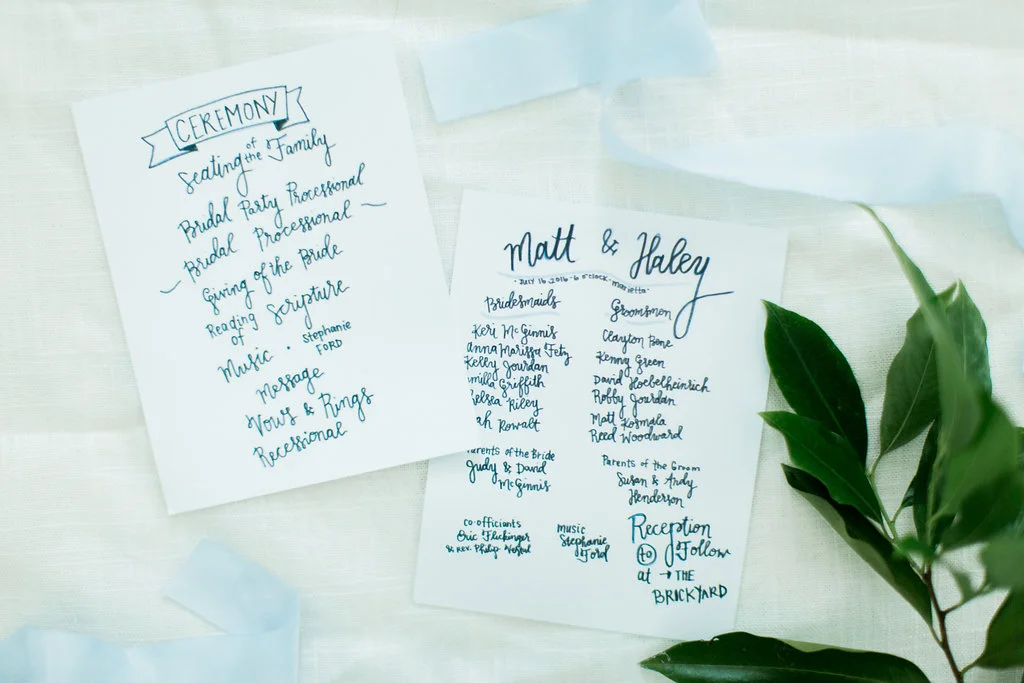 CEREMONY
Seating of the Family
Bridal Party Processional
Bridal Processional
Giving of the Bride
Reading of Scripture
Music · Stephanie FORD
Message
Vows & Rings
Recessional
Matt & Haley
· July 16, 2016 - 6 o'clock · marietta ·
Bridesmaids
Keri McGinnis
anna Marissa Fetz
Kelly Jourdan
milla Griffith
elsea Riley
ah Rowalt
Groomsmen
Clayton Bone
Kenny Green
David Hoebelheinrich
Robby Jourdan
Matt Kosmala
Reed Woodward
arents of the Bride
Judy & David
McGinnis
Parents of the Groom
Susan & Andy
Henderson
co-officiants
Eric Flickinger
& REV. Philip
music
Stephanie
Ford
Reception
to Follow
at → THE
BRICKYARD